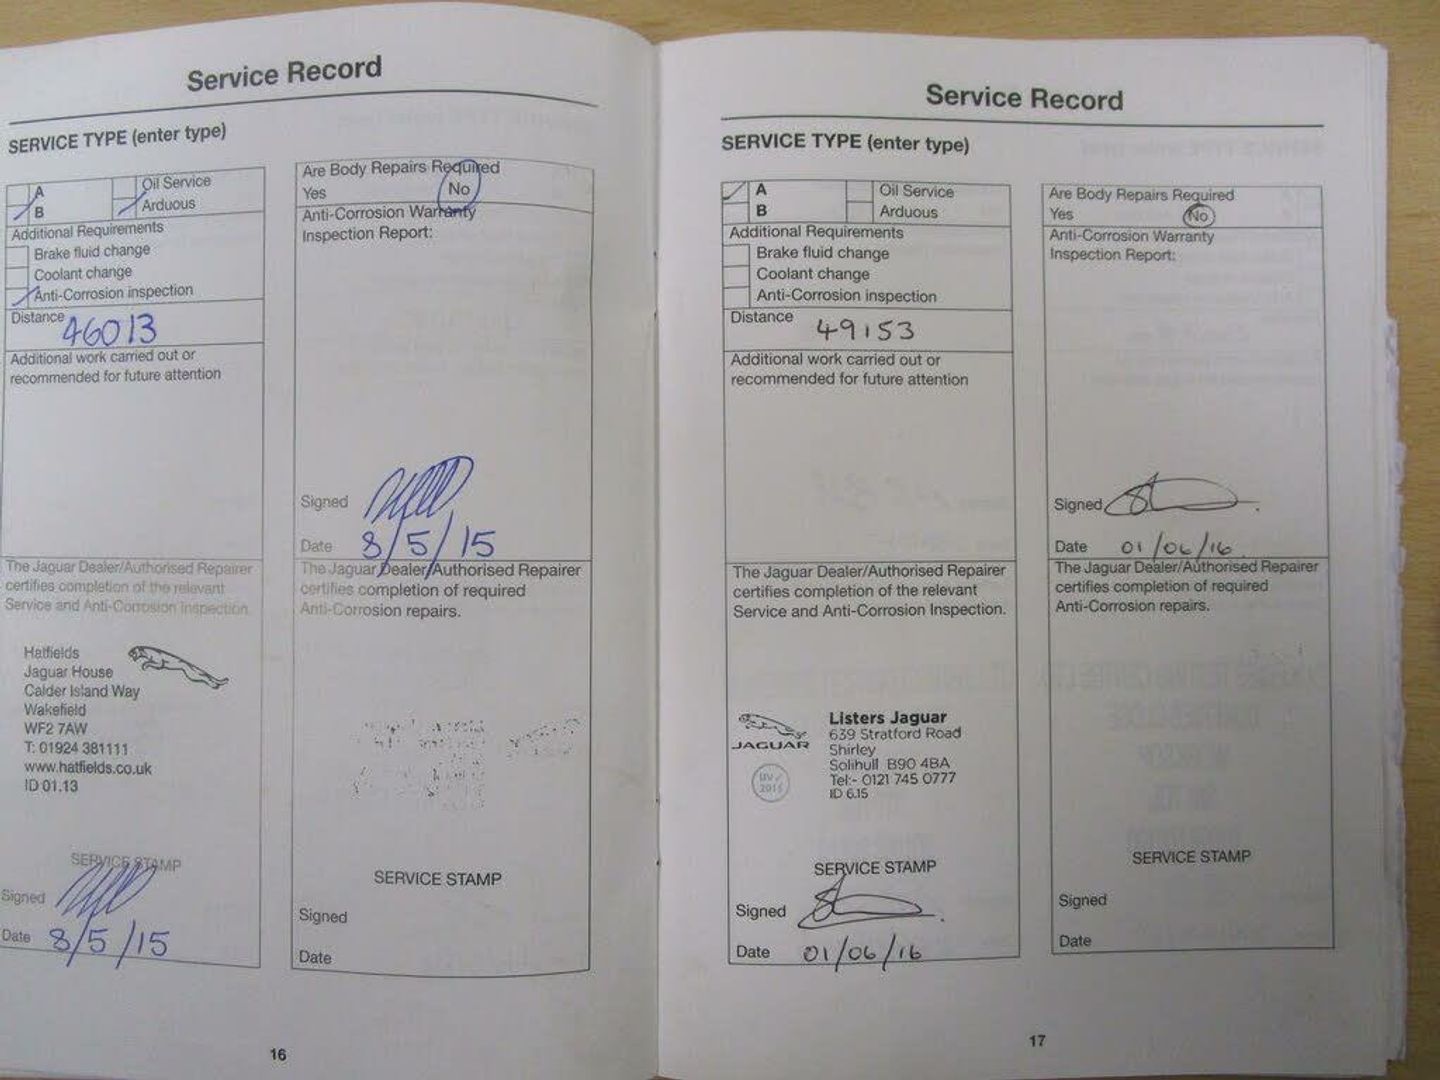 Service Record
SERVICE TYPE (enter type)
A Oil Service
B Arduous
Additional Requirements
Brake fluid change
Coolant change
Anti-Corrosion inspection
Distance 46013
Additional work carried out or
recommended for future attention
The Jaguar Dealer/Authorised Repairer
certifies completion of the relevant
Service and Anti-Corrosion Inspection.
Hatfields
Jaguar House
Calder Island Way
Wakefield
WF2 7AW
T: 01924 381111
www.hatfields.co.uk
ID 01.13
SERVICE STAMP
Signed
Date 8/5/15
Are Body Repairs Required
Yes No
Anti-Corrosion Warranty
Inspection Report:
Signed
Date 8/5/15
The Jaguar Dealer/Authorised Repairer
certifies completion of required
Anti-Corrosion repairs.
SERVICE STAMP
Signed
Date
16
Service Record
SERVICE TYPE (enter type)
A Oil Service
B Arduous
Additional Requirements
Brake fluid change
Coolant change
Anti-Corrosion inspection
Distance 49153
Additional work carried out or
recommended for future attention
The Jaguar Dealer/Authorised Repairer
certifies completion of the relevant
Service and Anti-Corrosion Inspection.
JAGUAR
Listers Jaguar
639 Stratford Road
Shirley
Solihull B90 4BA
Tel:- 0121 745 0777
ID 6.15
SERVICE STAMP
Signed
Date 01/06/16
Are Body Repairs Required
Yes No
Anti-Corrosion Warranty
Inspection Report:
Signed
Date 01/06/16
The Jaguar Dealer/Authorised Repairer
certifies completion of required
Anti-Corrosion repairs.
SERVICE STAMP
Signed
Date
17